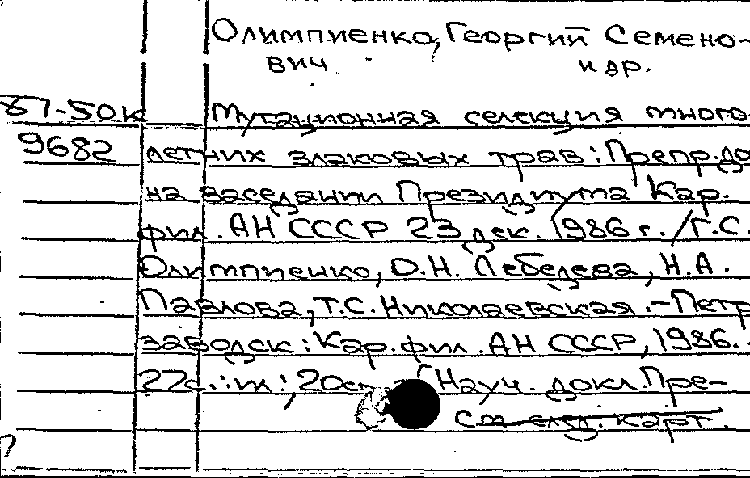 Олимпиенко, Георгий Семено-
вич и др.
87-50К Мутационная селекция много-
9682 летних злаковых трав: Препр. до
на заседании Президиума Кар.
фил. АН СССР 23 дек. 1986 г. / Г.С.
Олимпиенко, О.Н. Лебедева, Н.А.
Павлова, Т.С. Николаевская. - Петр
заводск: Кар. фил. АН СССР, 1986. -
22 с.: ил.; 20 см - (Науч. докл. Пре-
См. след. карт.